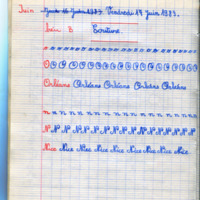 Juin Vendredi 17 Juin 1983.
Soin B Ecriture.
O O O O O O O O O O O O O O O
Orléans Orléans Orléans Orléans Orléans
n n n n n n n n n n n n n n n n
N N N N N N N N N N N N N
Nice Nice Nice Nice Nice Nice Nice Nice Nice